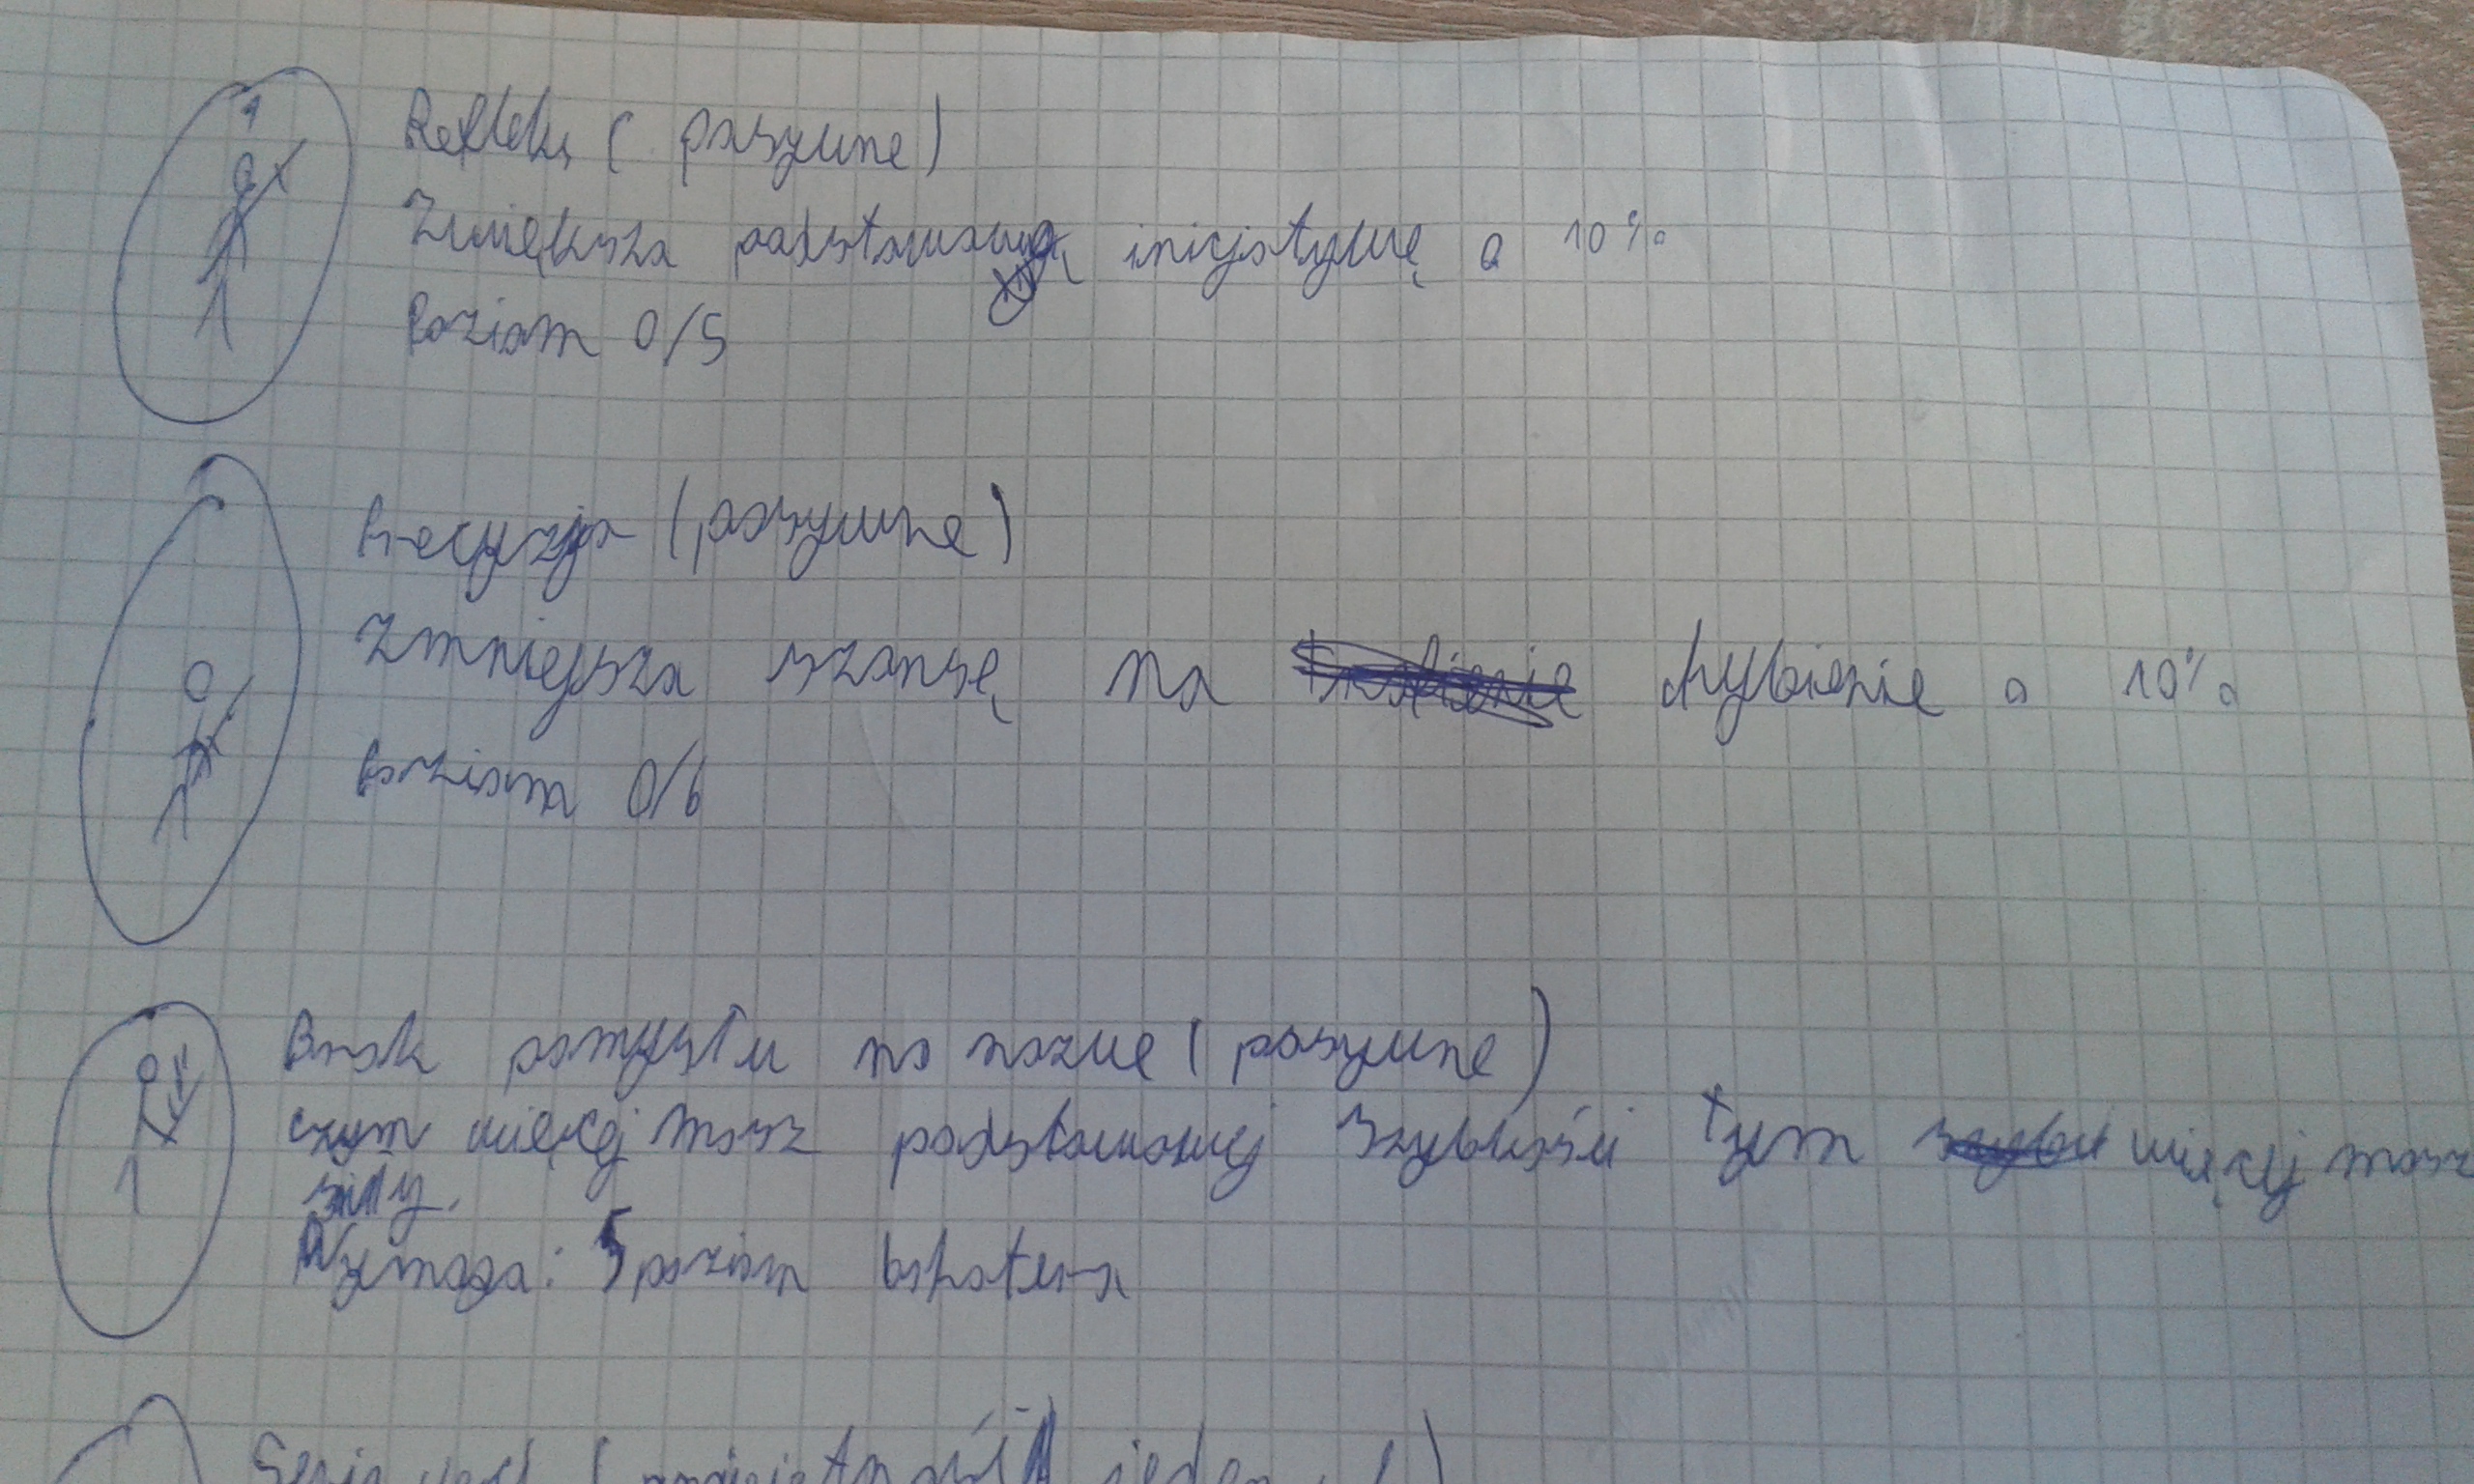 Refleks (pasywne)
Zwiększa podstawową inicjatywę o 10%
Poziom 0/5
Precyzja (pasywne)
Zmniejsza szansę na chybienie o 10%
Poziom 0/6
Brak pomysłu na nazwę (pasywne)
czym więcej masz podstawowej szybkości tym więcej masz
siły.
Wymaga: 5 poziom bohatera